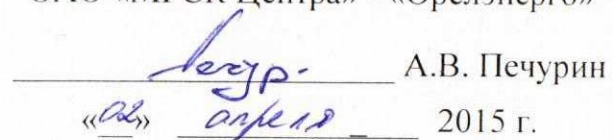 ОАО «МРСК Центра» – «Орелэнерго»
Печур. А.В. Печурин
«02» апреля 2015 г.